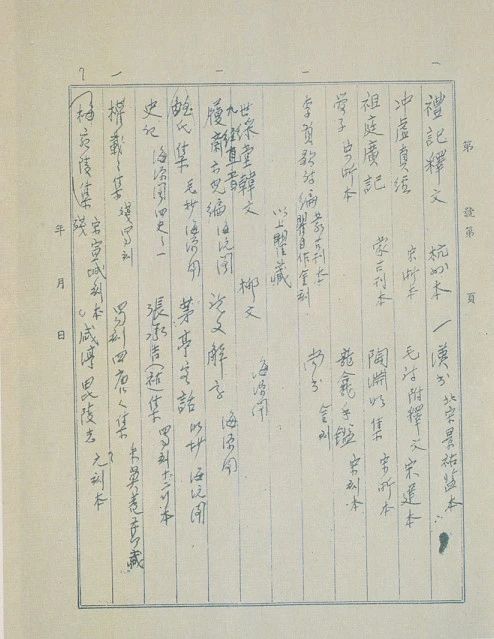 第 號第 頁
禮記釋文 杭州本 一漢書 北宋景祐監本
冲虛真經 宋浙本 毛詩附釋文 宋建本
祖庭廣記 蒙古刊本 陶淵明集 宋浙本
荀子 宋浙本 龍龕手鑑 宋刻本
李賀歌詩編 蒙古刊本 尚書 金刻
以上瞿藏
海源閣
世綵堂韓文 柳文
九經直音
履齋示兒編 海源閣 說文解字 海源閣
鮑氏集 毛抄 海源閣 茅亭客話 明抄 海源閣
史記 海源閣四史之一 張承吉集 蜀刻十二行本
權載之集 殘蜀刻 蜀刻四唐人集 朱翼菴藏
梅宛陵集殘 宋宣城刻本 咸淳毘陵志 元刻本
年 月 日